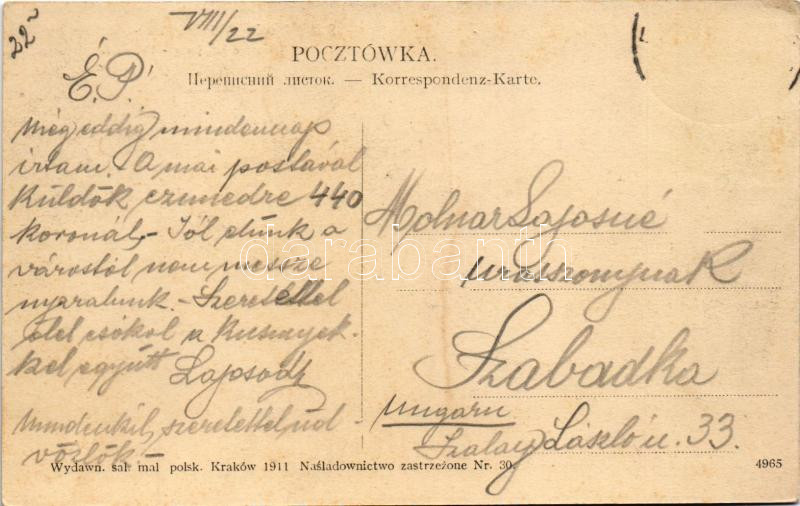 22
VIII/22
POCZTÓWKA.
Переписний листок. — Korrespondenz-Karte.
É.P.
Még eddig mindennap
irtam. - A mai postával
küldök czimedre 440
koronát. - Jól élünk a
várostól nem messze
nyaralunk. - Szeretettel
ölel csókol a
kel együtt Lajosod
Mindenkit szeretettel üd-
vözlök -
Molnar Lajosné
urasszonynak
Szabadka
Ungarn
Szalay László u. 33.
darabanth
Wydawn. sal. mal polsk. Kraków 1911 Naśladownictwo zastrzeżone Nr. 30.
4965